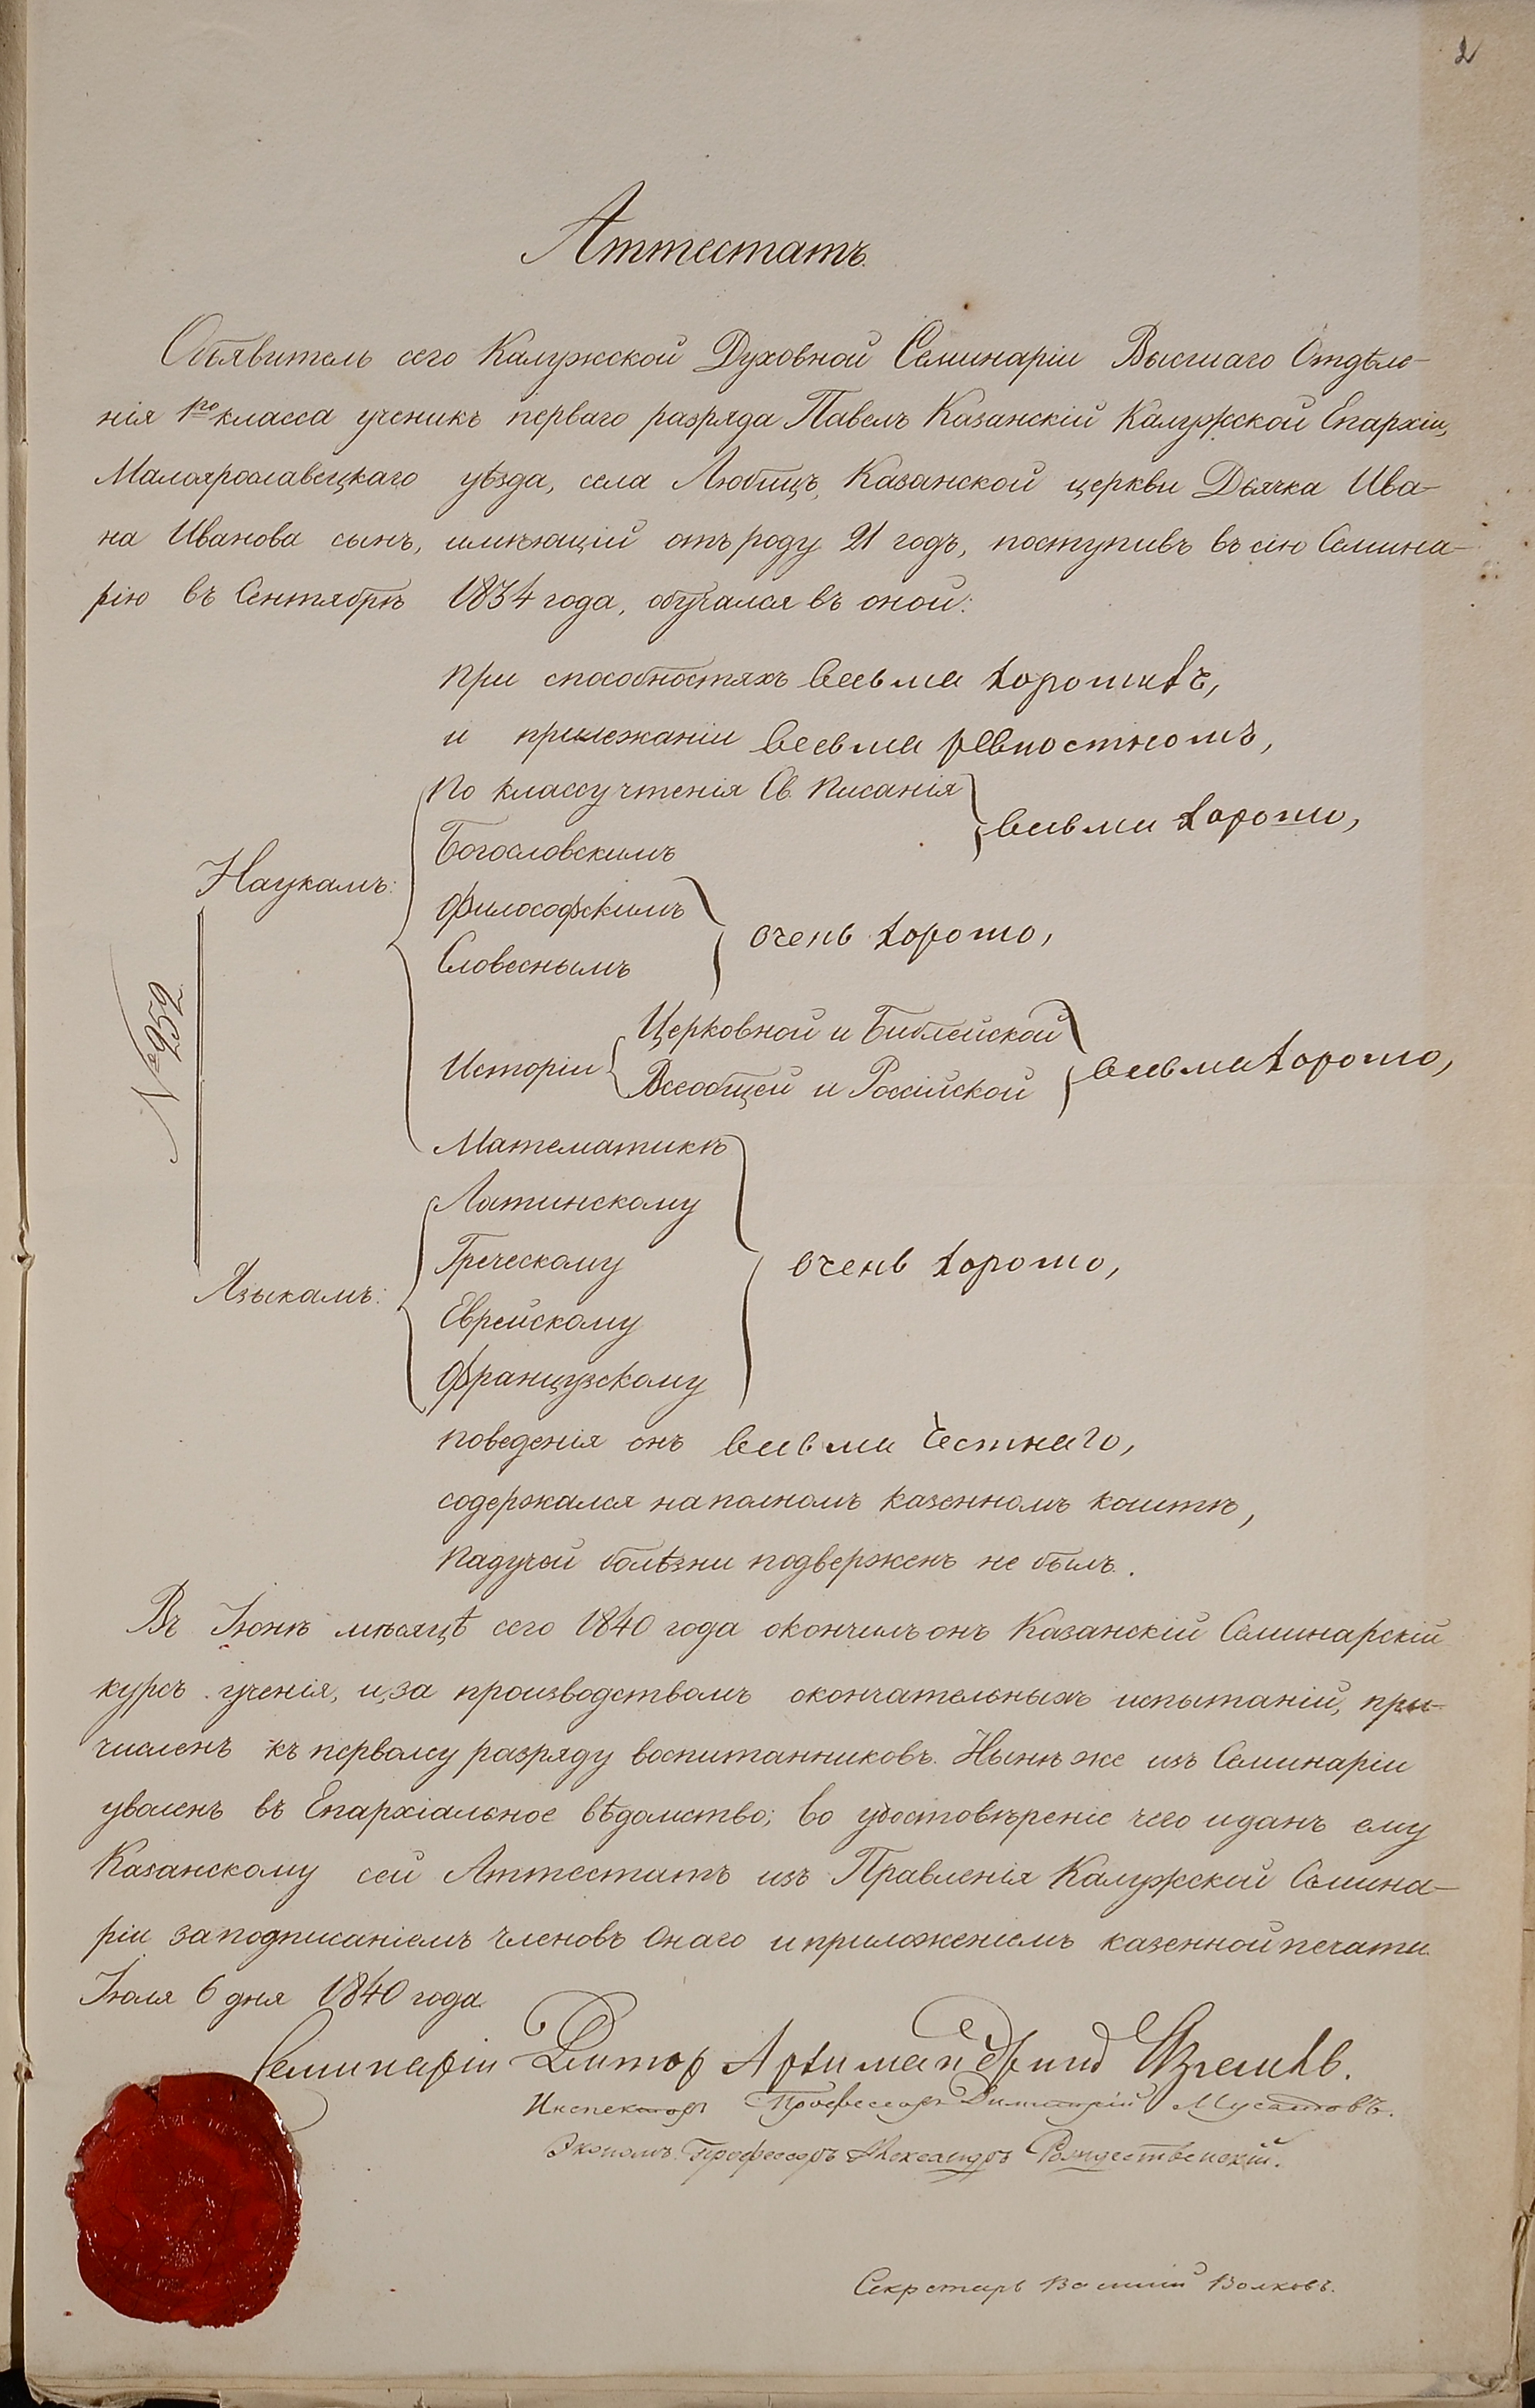 2
Аттестатъ.
Объявитель сего Калужской Духовной Семинаріи Высшаго Отдѣле-
нія 1го класса ученикъ перваго разряда Павелъ Казанскій Калужской Епархіи,
Малоярославецкаго уѣзда, села Любицъ, Казанской церкви Дьячка Ива-
на Иванова сынъ, имѣющій отъ роду 21 годъ, поступивъ въ сію Семина-
рію въ Сентябрѣ 1834 года, обучался въ оной:
при способностяхъ весьма хорошихъ,
и прилежаніи весьма ревностномъ,
по классу чтенія Св. Писанія
Богословскимъ
весьма хорошо,
Наукамъ:
Философскимъ
Словеснымъ
очень хорошо,
№ 952
Исторіи
Церковной и Библейской
Всеобщей и Россійской
весьма хорошо,
Математикѣ
Латинскому
Греческому
очень хорошо,
Языкамъ:
Еврейскому
Французскому
поведенія онъ весьма честнаго,
содержался на полномъ казенномъ коштѣ,
падучей болѣзни подверженъ не былъ.
Въ Іюнѣ мѣсяцѣ сего 1840 года окончилъ онъ Казанскій Семинарскій
курсъ ученія, и, за производствомъ окончательныхъ испытаній, при-
численъ къ первому разряду воспитанниковъ. Нынѣ же изъ Семинаріи
уволенъ въ Епархіальное вѣдомство; во удостовѣреніе чего и данъ ему
Казанскому сей Аттестатъ изъ Правленія Калужской Семина-
ріи за подписаніемъ членовъ онаго и приложеніемъ казенной печати
Іюля 6 дня 1840 года.
Семинаріи Ректор Архимандрит
Инспекторъ Профессоръ Димитрій
Экономъ Профессоръ Александръ Рождественскій.
Секретарь Василій Волковъ.